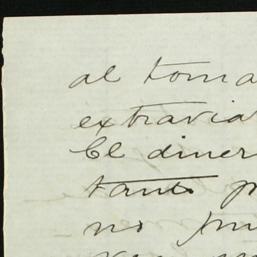 al toma
extravia
El diner
tanto p
no pu